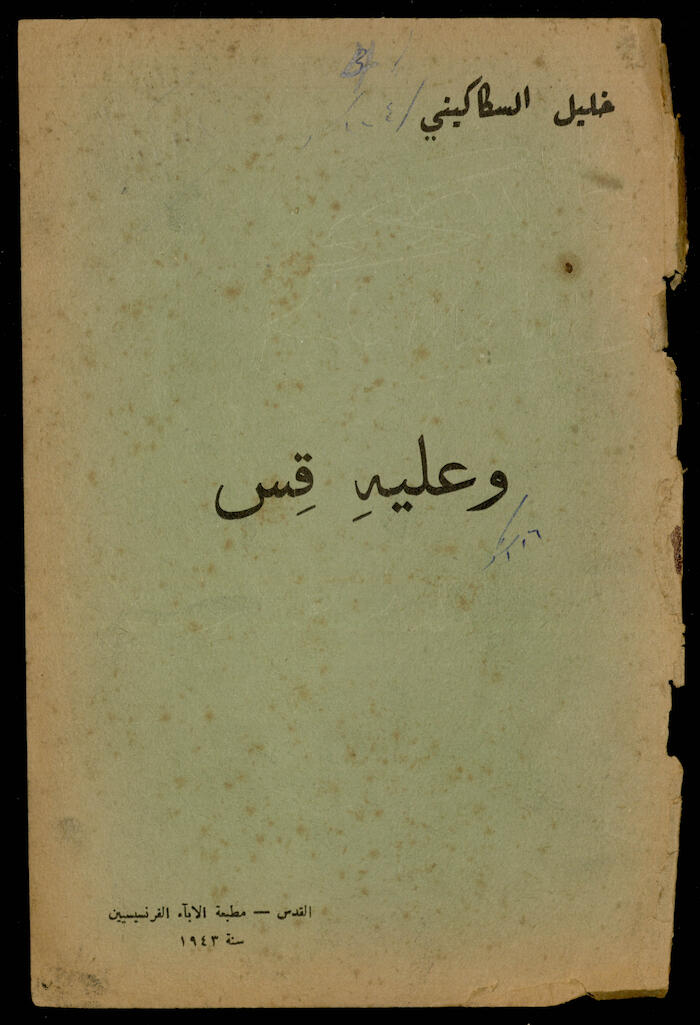 خليل السكاكيني
وعليهِ قِس
القدس — مطبعة الاباء الفرنسيسيين
سنة ١٩٤٣